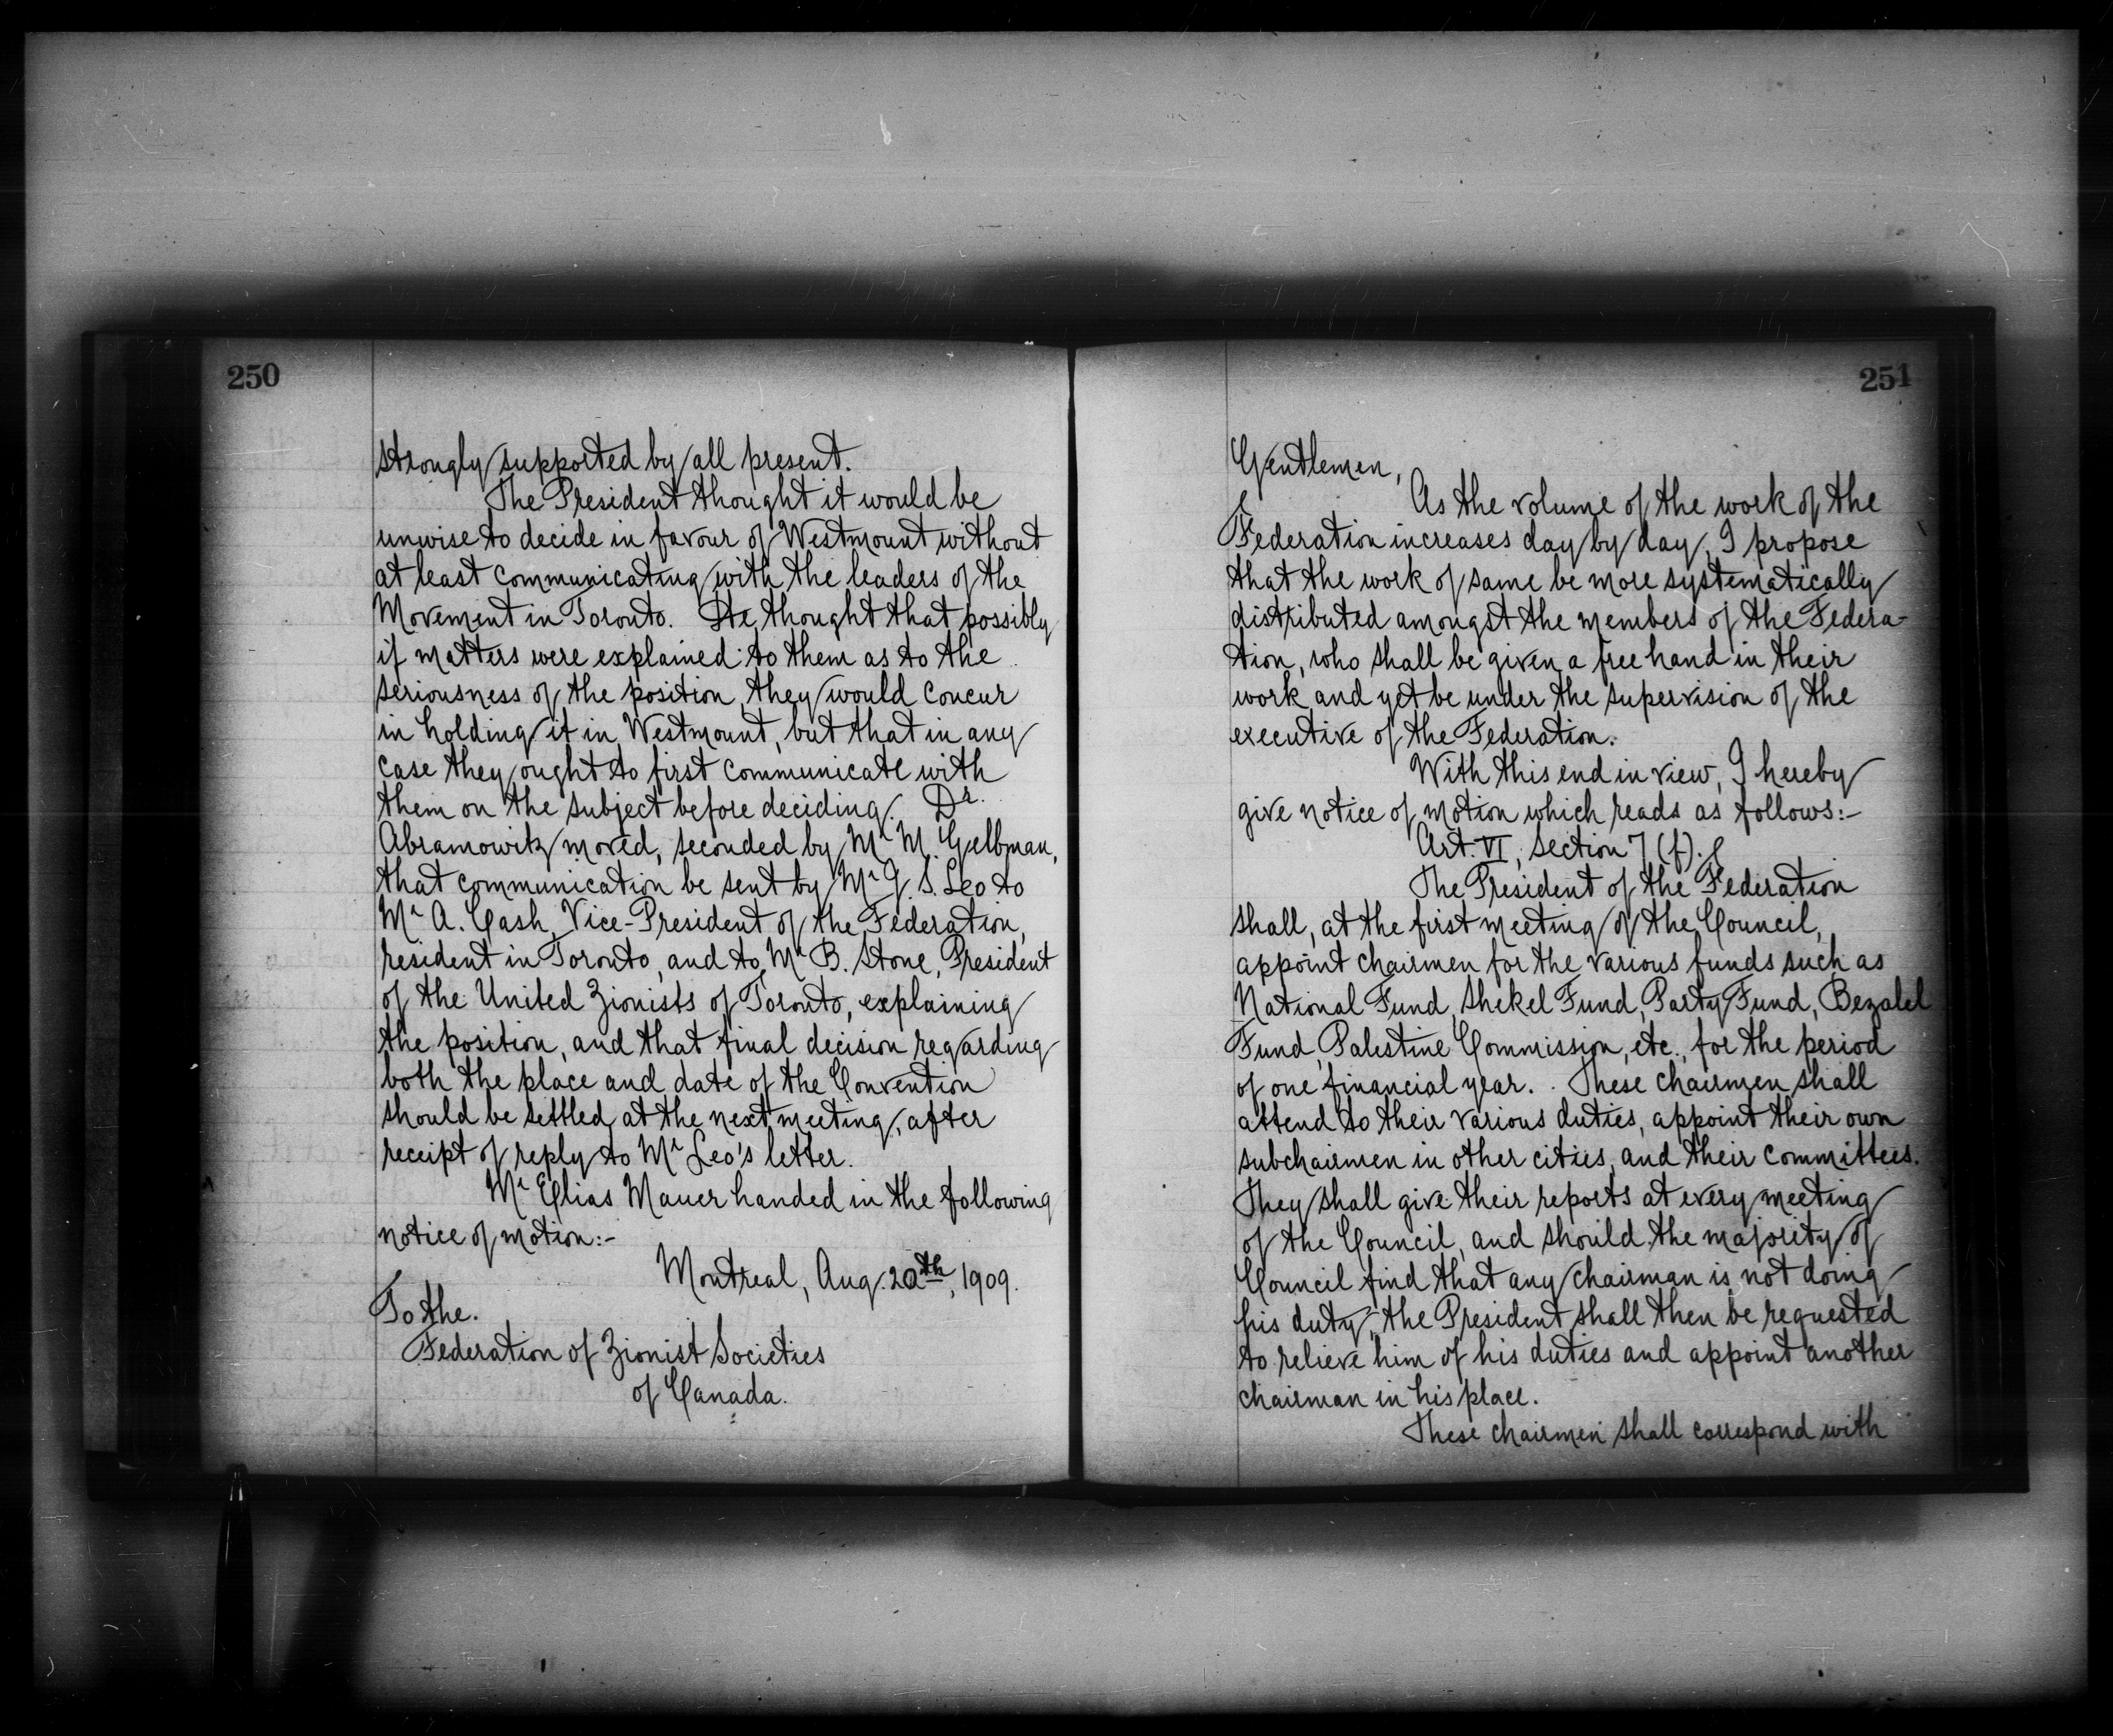 250
strongly supported by all present.
The President thought it would be
unwise to decide in favour of Westmount without
at least communicating with the leaders of the
Movement in Toronto. He thought that possibly
if matters were explained to them as to the
seriousness of the position, they would concur
in holding it in Westmount, but that in any
case they ought to first communicate with
them on the subject before deciding. Dr.
Abramowitz moved, seconded by Mr M. Gelbman,
that communication be sent by Mr J. S. Leo to
Mr A. Cash, Vice-President of the Federation,
resident in Toronto, and to Mr B. Stone, President
of the United Zionists of Toronto, explaining
the position, and that final decision regarding
both the place and date of the Convention
should be settled at the next meeting, after
receipt of reply to Mr Leo's letter.
Mr Elias Mauer handed in the following
notice of motion:-
Montreal, Aug. 20th, 1909.
To the.
Federation of Zionist Societies
of Canada.
251
Gentlemen,
As the volume of the work of the
Federation increases day by day, I propose
that the work of same be more systematically
distributed amongst the members of the Federa-
tion, who shall be given a free hand in their
work and yet be under the supervision of the
executive of the Federation.
With this end in view, I hereby
give notice of motion which reads as follows:-
Art. VI, section 7 (f).
The President of the Federation
shall, at the first meeting of the Council,
appoint chairmen for the various funds such as
National Fund, Shekel Fund, Party Fund, Bezalel
Fund, Palestine Commission, etc., for the period
of one financial year. These chairmen shall
attend to their various duties, appoint their own
subchairmen in other cities, and their committees.
They shall give their reports at every meeting
of the Council, and should the majority of
Council find that any chairman is not doing
his duty, the President shall then be requested
to relieve him of his duties and appoint another
chairman in his place.
These chairmen shall correspond with